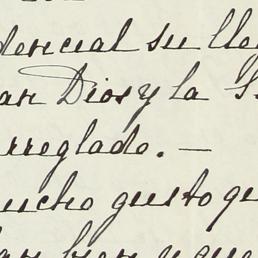 dencial su lle
an Dios y la S
rreglado. —
ucho gusto qu